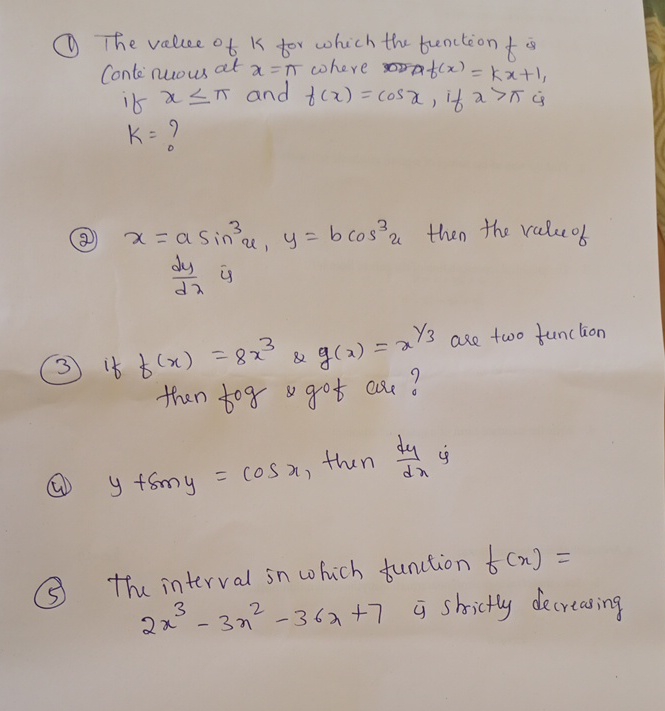 ① The value of K for which the function f is
Continuous at x = π where f(x) = Kx+1,
if x ≤ π and f(x) = cosx, if x > π is
K = ?
② x = a sin³u, y = b cos³u then the value of
dy/dx is
③ if f(x) = 8x³ & g(x) = x^1/3 are two function
then fog & gof are ?
④ y + siny = cosx, then dy/dx is
⑤ The interval in which function f(x) =
2x³ - 3x² - 36x + 7 is strictly decreasing